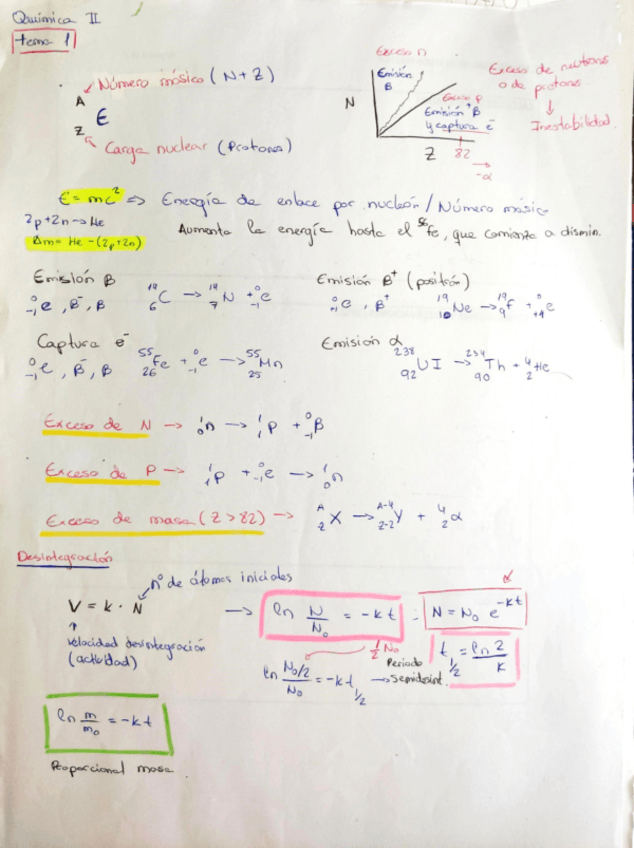 Química II
tema 1
Número másico (N+Z)
A
Z
E
Carga nuclear (Protones)
Exceso n
N
Emisión
β
Exceso p
Emisión β⁺
y captura e⁻
Z
82
→
-α
Exceso de neutrones
o de protones
↓
Inestabilidad
E=mc² ⇒ Energía de enlace por nucleón / Número másico
2p+2n→He
Δm= He-(2p+2n)
Aumenta la energía hasta el ⁵⁶Fe, que comienza a dismin.
Emisión β
⁰₋₁e, β⁻, β ¹⁴₆C → ¹⁴₇N + ⁰₋₁e
Emisión β⁺ (positrón)
⁰₊₁e, β⁺ ¹⁹₁₀Ne → ¹⁹₉F + ⁰₊₁e
Captura e⁻
⁰₋₁e, β⁻, β ⁵⁵₂₆Fe + ⁰₋₁e → ⁵⁵₂₅Mn
Emisión α
²³⁸₉₂UI → ²³⁴₉₀Th + ⁴₂He
Exceso de N → ¹₀n → ¹₁p + ⁰₋₁β
Exceso de P → ¹₁p + ⁰₋₁e → ¹₀n
Exceso de masa (Z>82) → ᴬ_Z X → ᴬ⁻⁴_Z₋₂ Y + ⁴₂α
Desintegración
nº de átomos iniciales
V = k · N → ln N/N₀ = -kt : N = N₀ e^-kt
velocidad desintegración
(actividad)
½ N₀
ln N₀/2 / N₀ = -kt ½ → Periodo
Semidesint.
t ½ = ln 2 / k
ln m/m₀ = -kt
Proporcional masa